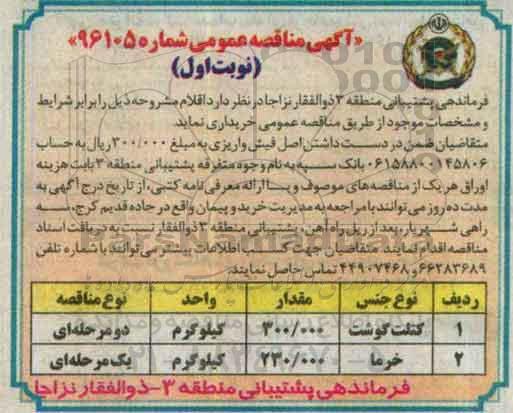 «آگهی مناقصه عمومی شماره ۹۶۱۰۵»
(نوبت اول)
فرماندهی پشتیبانی منطقه ۳ ذوالفقار نزاجا در نظر دارد اقلام مشروحه ذیل را برابر شرایط
و مشخصات موجود از طریق مناقصه عمومی خریداری نماید.
متقاضیان ضمن در دست داشتن اصل فیش واریزی به مبلغ ۳۰۰/۰۰۰ ریال به حساب
۰۶۱۵۸۸۰۰۱۴۵۸۰۶ بانک سپه به نام وجوه متفرقه پشتیبانی منطقه ۳ بابت هزینه
اوراق هر یک از مناقصه‌های موصوف و با ارائه معرفی نامه کتبی، از تاریخ درج آگهی به
مدت ده روز می‌توانند با مراجعه به مدیریت خرید و پیمان واقع در جاده قدیم کرج، سه
راهی شهریار، بعد از ریل راه آهن، پشتیبانی منطقه ۳ ذوالفقار نسبت به دریافت اسناد
مناقصه اقدام نمایند. متقاضیان جهت کسب اطلاعات بیشتر می‌توانند با شماره تلفن
۶۶۲۸۳۶۸۹ و ۴۴۹۰۷۴۶۸ تماس حاصل نمایند.
ردیف نوع جنس مقدار واحد نوع مناقصه
۱ کتلت گوشت ۳۰۰/۰۰۰ کیلوگرم دو مرحله‌ای
۲ خرما ۲۳۰/۰۰۰ کیلوگرم یک مرحله‌ای
فرماندهی پشتیبانی منطقه ۳-ذوالفقار نزاجا